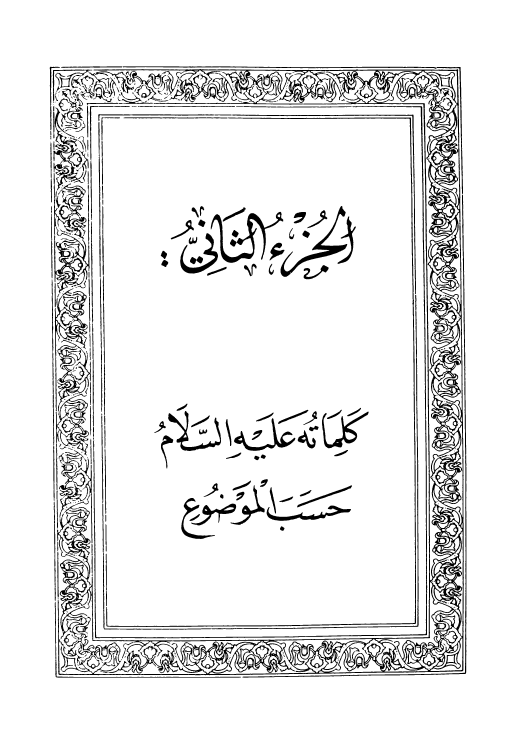 الجُزْءُ الثَانِيُّ :
كَلِمَاتُهُ عَلَيْهِ السَّلَامُ
حَسَبَ الْمَوْضُوعِ